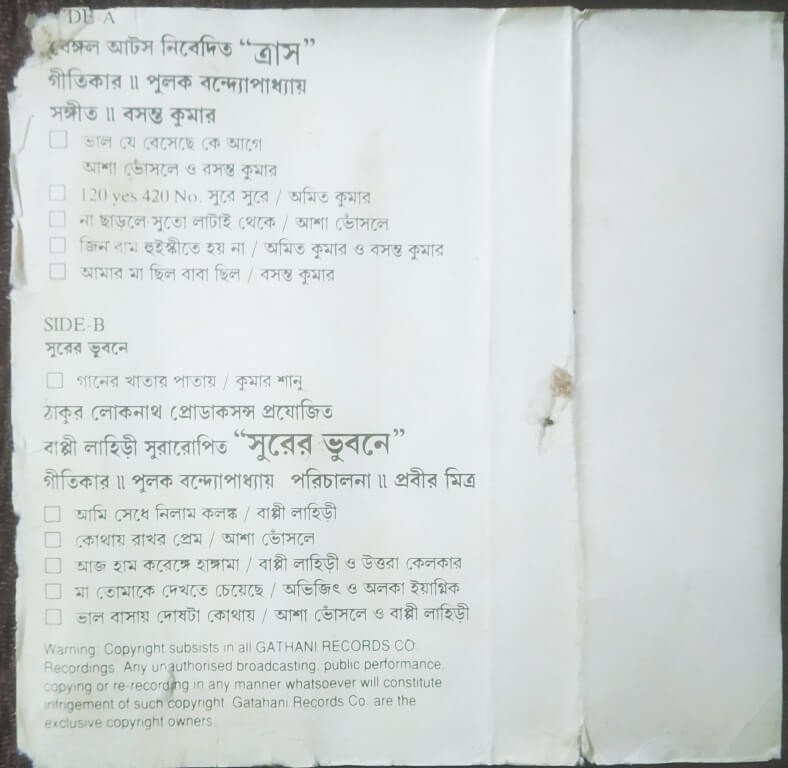 SIDE-A
বেঙ্গল আর্টস নিবেদিত “ত্রাস”
গীতিকার ॥ পুলক বন্দ্যোপাধ্যায়
সঙ্গীত ॥ বসন্ত কুমার
ভাল যে বেসেছে কে আগে
আশা ভোঁসলে ও বসন্ত কুমার
120 yes 420 No. সুরে সুরে / অমিত কুমার
না ছাড়লে সুতো লাটাই থেকে / আশা ভোঁসলে
জিন রাম হুইস্কীতে হয় না / অমিত কুমার ও বসন্ত কুমার
আমার মা ছিল বাবা ছিল / বসন্ত কুমার
SIDE-B
সুরের ভুবনে
গানের খাতার পাতায় / কুমার শানু
ঠাকুর লোকনাথ প্রোডাকসন্স প্রযোজিত
বাপ্পী লাহিড়ী সুরারোপিত “সুরের ভুবনে”
গীতিকার ॥ পুলক বন্দ্যোপাধ্যায় পরিচালনা ॥ প্রবীর মিত্র
আমি সেধে নিলাম কলঙ্ক / বাপ্পী লাহিড়ী
কোথায় রাখব প্রেম / আশা ভোঁসলে
আজ হাম করেঙ্গে হাঙ্গামা / বাপ্পী লাহিড়ী ও উত্তরা কেলকার
মা তোমাকে দেখতে চেয়েছে / অভিজিৎ ও অলকা ইয়াগ্নিক
ভাল বাসায় দোষটা কোথায় / আশা ভোঁসলে ও বাপ্পী লাহিড়ী
Warning: Copyright subsists in all GATHANI RECORDS CO.
Recordings. Any unauthorised broadcasting, public performance,
copying or re-recording in any manner whatsoever will constitute
infrigement of such copyright. Gatahani Records Co. are the
exclusive copyright owners.